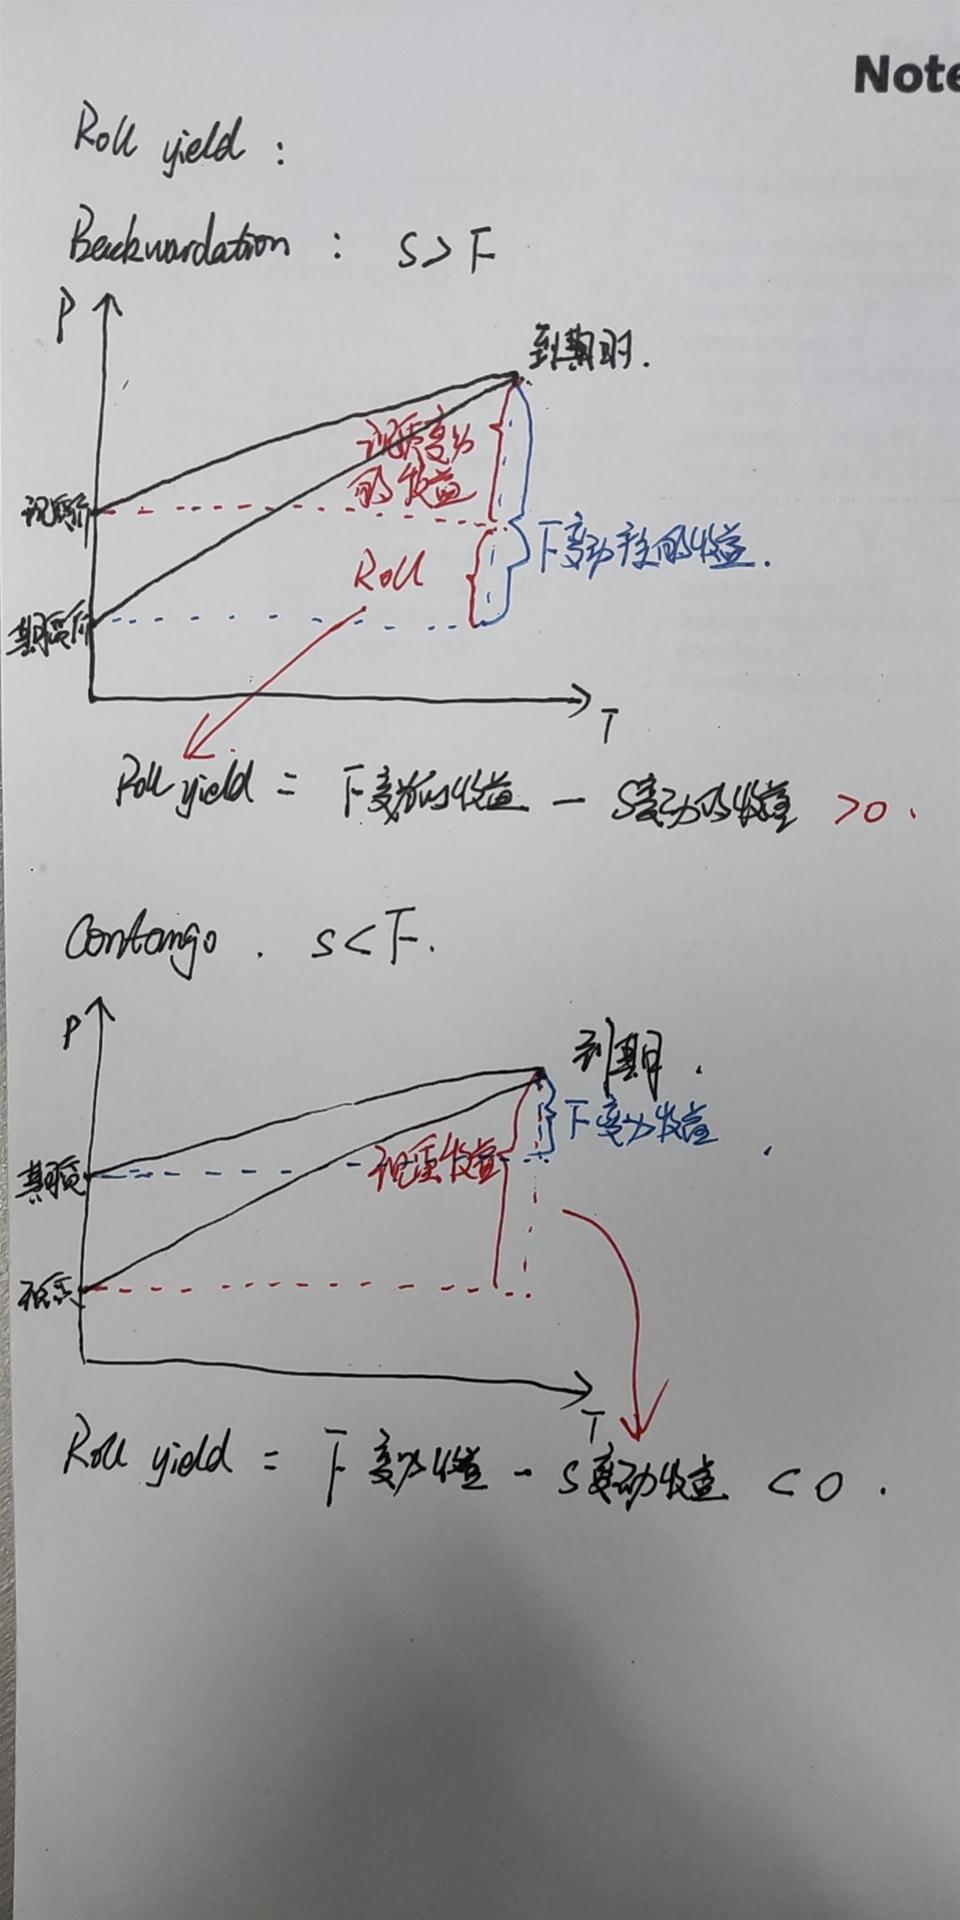 Note
Roll yield :
Backwardation : S > F
P
到期时.
现货变动
的收益
现货价
Roll
F变动产生的收益.
期货价
T
Roll yield = F变动的收益 - S变动的收益 >0.
Contango. S < F.
P
到期时.
F变动收益
期货
现货收益
现货
T
Roll yield = F变动收益 - S变动收益 < 0.